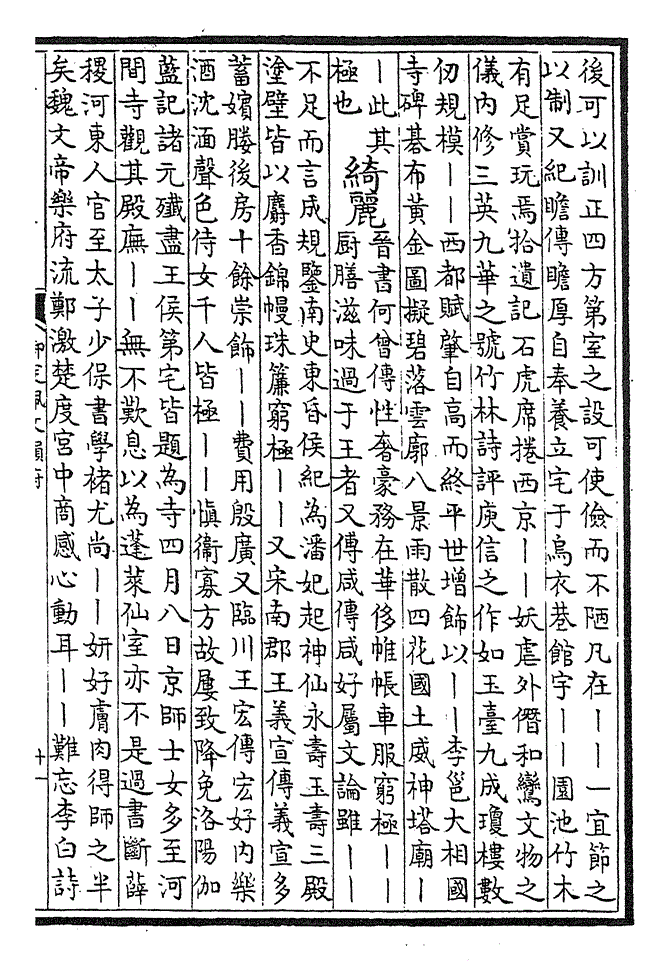 後可以訓正四方第室之設可使儉而不陋凡在丨丨一宜節之
以制又紀瞻傳瞻厚自奉養立宅于烏衣巷館宇丨丨園池竹木
有足賞玩焉拾遺記石虎席捲西京丨丨妖虐外僭和鸞文物之
儀內修三英九華之號竹林詩評庾信之作如玉臺九成瓊樓數
仞規模丨丨西都賦肇自高而終平世增飾以丨丨李邕大相國
寺碑碁布黃金圖擬碧落雲廓八景雨散四花國土威神塔廟丨
丨此其
極也
綺麗
晉書何曾傳性奢豪務在華侈帷帳車服窮極丨丨
厨膳滋味過于王者又傳咸傳咸好屬文論雖丨丨
不足而言成規鑒南史東昏侯紀為潘妃起神仙永壽玉壽三殿
塗壁皆以麝香錦幔珠簾窮極丨丨又宋南郡王義宣傳義宣多
蓄嬪媵後房十餘崇飾丨丨費用殷廣又臨川王宏傳宏好內樂
酒沈湎聲色侍女千人皆極丨丨愼衞寡方故屢致降免洛陽伽
藍記諸元殲盡王侯第宅皆題為寺四月八日京師士女多至河
間寺觀其殿廡丨丨無不歎息以為蓬萊仙室亦不是過書斷薛
稷河東人官至太子少保書學褚尤尚丨丨妍好膚肉得師之半
矣魏文帝樂府流鄭激楚度宮中商感心動耳丨丨難忘李白詩